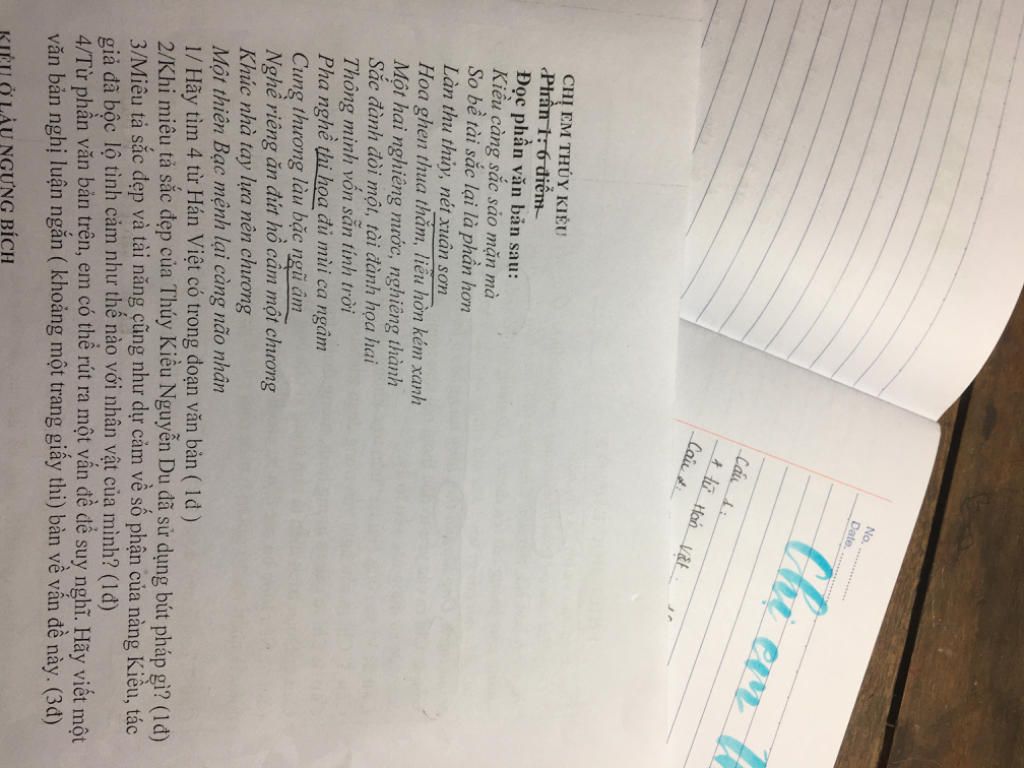 CHỊ EM THÚY KIỀU
Phần 1: 6 điểm
Đọc phần văn bản sau:
Kiều càng sắc sảo mặn mà
So bề tài sắc lại là phần hơn
Làn thu thủy, nét xuân sơn
Hoa ghen thua thắm, liễu hờn kém xanh
Một hai nghiêng nước, nghiêng thành
Sắc đành đòi một, tài đành họa hai
Thông minh vốn sẵn tính trời
Pha nghề thi họa đủ mùi ca ngâm
Cung thương làu bậc ngũ âm
Nghề riêng ăn đứt hồ cầm một chương
Khúc nhà tay lựa nên chương
Một thiên Bạc mệnh lại càng não nhân
1/ Hãy tìm 4 từ Hán Việt có trong đoạn văn bản ( 1đ )
2/Khi miêu tả sắc đẹp của Thúy Kiều Nguyễn Du đã sử dụng bút pháp gì? (1đ)
3/Miêu tả sắc đẹp và tài năng cũng như dự cảm về số phận của nàng Kiều, tác
giả đã bộc lộ tình cảm như thế nào với nhân vật của mình? (1đ)
4/Từ phần văn bản trên, em có thể rút ra một vấn đề để suy nghĩ. Hãy viết một
văn bản nghị luận ngắn ( khoảng một trang giấy thi) bàn về vấn đề này. (3đ)
KIỀU Ở LẦU NGƯNG BÍCH
No.
Date.
Chị em
Câu 1:
4 từ Hán Việt
Câu 2: